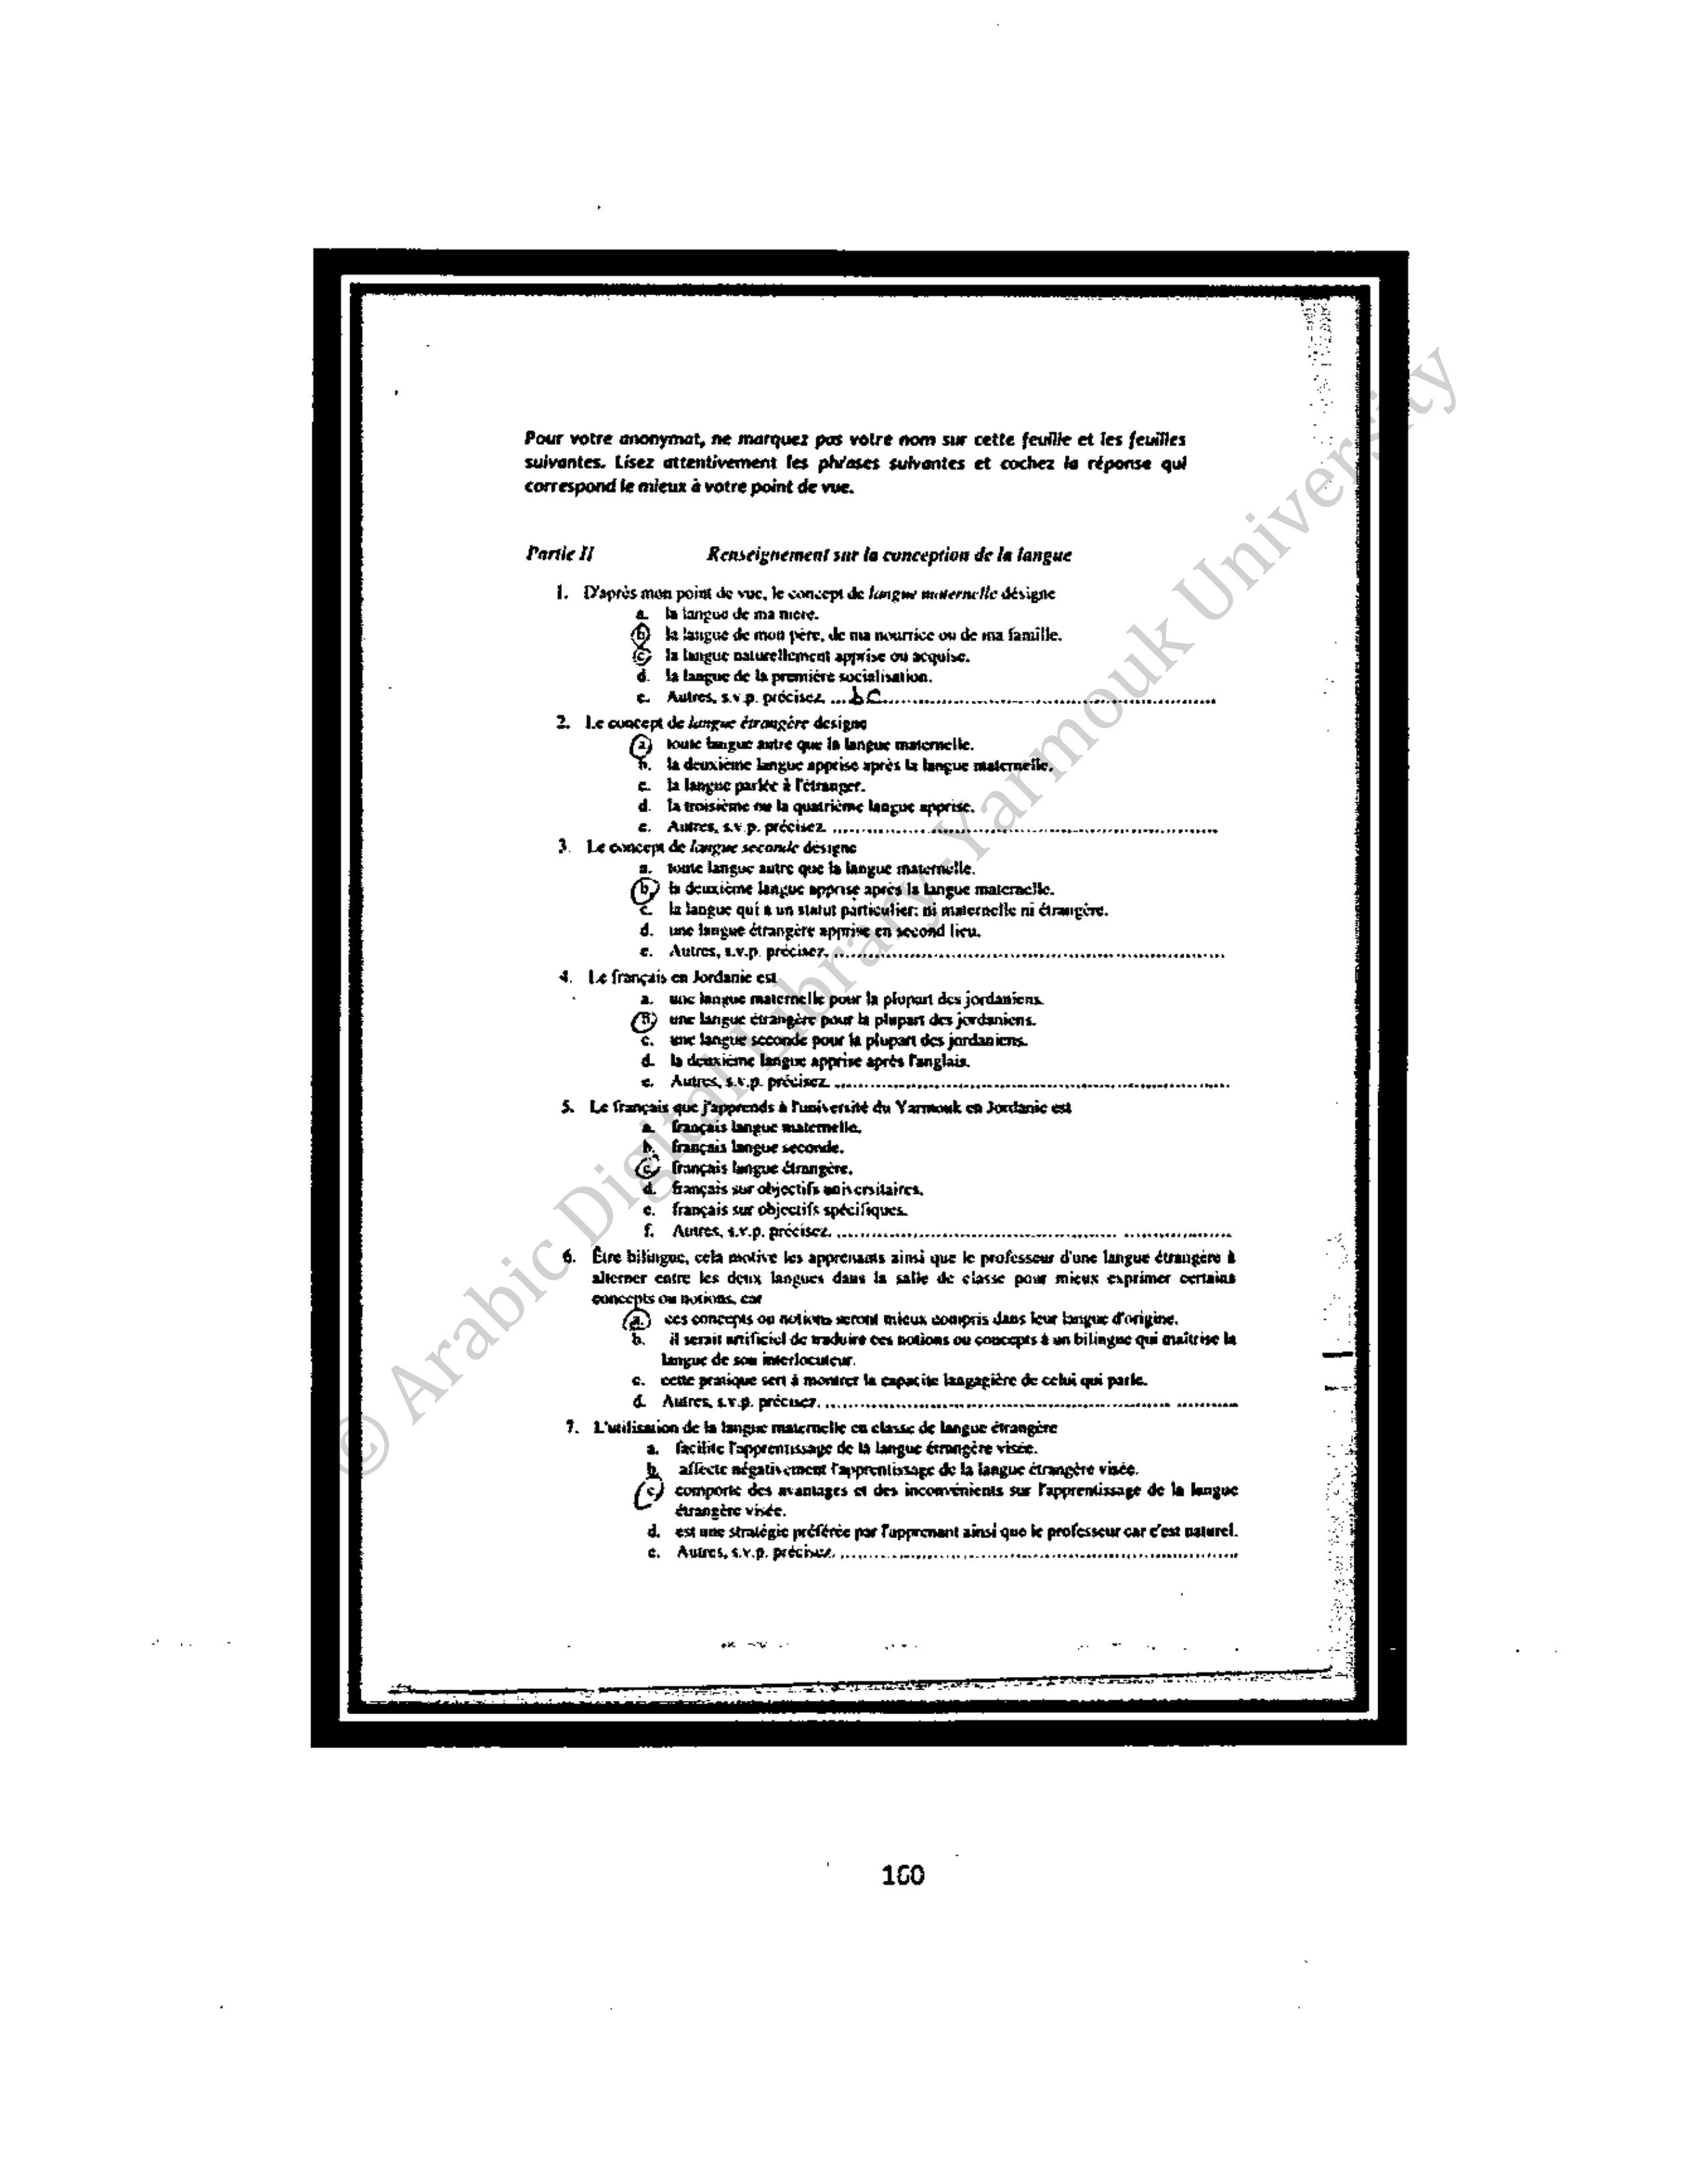 Pour votre anonymat, ne marquez pas votre nom sur cette feuille et les feuilles
suivantes. Lisez attentivement les phrases suivantes et cochez la réponse qui
correspond le mieux à votre point de vue.
Partie II Renseignement sur la conception de la langue
1. D'après mon point de vue, le concept de langue maternelle désigne
a. la langue de ma mère.
b. la langue de mon père, de ma nourrice ou de ma famille.
c. la langue naturellement apprise ou acquise.
d. la langue de la première socialisation.
e. Autres, s.v.p. précisez. ...bC...
2. Le concept de langue étrangère designe
a. toute langue autre que la langue maternelle.
b. la deuxième langue apprise après la langue maternelle.
c. la langue parlée à l'étranger.
d. la troisième ou la quatrième langue apprise.
e. Autres, s.v.p. précisez. ...
3. Le concept de langue seconde désigne
a. toute langue autre que la langue maternelle.
b. la deuxième langue apprise après la langue maternelle.
c. la langue qui a un statut particulier: ni maternelle ni étrangère.
d. une langue étrangère apprise en second lieu.
e. Autres, s.v.p. précisez. ...
4. Le français en Jordanie est
a. une langue maternelle pour la plupart des jordaniens.
B. une langue étrangère pour la plupart des jordaniens.
c. une langue seconde pour la plupart des jordaniens.
d. la deuxième langue apprise après l'anglais.
e. Autres, s.v.p. précisez. ...
5. Le français que j'apprends à l'université du Yarmouk en Jordanie est
a. français langue maternelle.
b. français langue seconde.
c. français langue étrangère.
d. français sur objectifs universitaires.
e. français sur objectifs spécifiques.
f. Autres, s.v.p. précisez. ...
6. Être bilingue, cela motive les apprenants ainsi que le professeur d'une langue étrangère à
alterner entre les deux langues dans la salle de classe pour mieux exprimer certains
concepts ou notions, car
a. ces concepts ou notions seront mieux compris dans leur langue d'origine.
b. il serait artificiel de traduire ces notions ou concepts à un bilingue qui maîtrise la
langue de son interlocuteur.
c. cette pratique sert à montrer la capacité langagière de celui qui parle.
d. Autres, s.v.p. précisez. ...
7. L'utilisation de la langue maternelle en classe de langue étrangère
a. facilite l'apprentissage de la langue étrangère visée.
b. affecte négativement l'apprentissage de la langue étrangère visée.
c. comporte des avantages et des inconvénients sur l'apprentissage de la langue
étrangère visée.
d. est une stratégie préférée par l'apprenant ainsi que le professeur car c'est naturel.
e. Autres, s.v.p. précisez. ...
160
© Arabic Digital Library-Yarmouk University